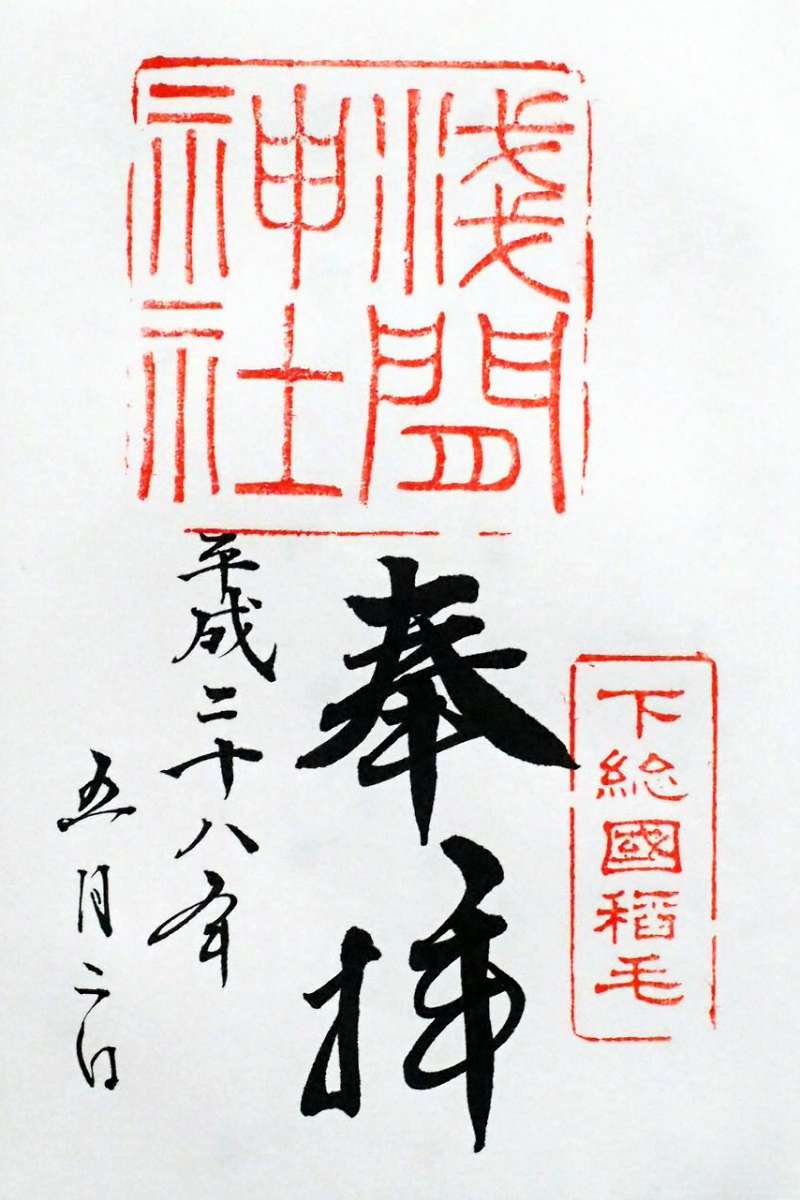 淺間
神社
下総國稲毛
奉拝
平成二十八年
五月二日